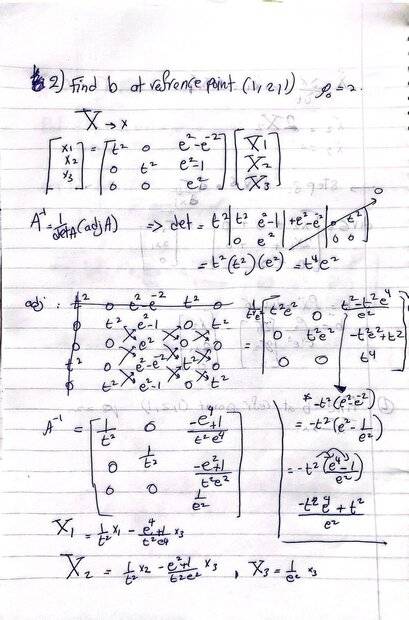 2) Find b at refrence point (1,2,1) ρ₀ = 2.
X → x
[x₁ x₂ x₃] = [t² 0 e²-e⁻²; 0 t² e²-1; 0 0 e²] [X₁ X₂ X₃]
A⁻¹ = 1/detA (adj A) => det = t² |t² e²-1; 0 e²| + e²-e⁻² |0 t²; 0 0| 0
= t²(t²)(e²) = t⁴e²
adj : t² 0 e²-e⁻² t² 0
0 t² e²-1 0 t²
0 0 e² 0 0
t² 0 e²-e⁻² t² 0
0 t² e²-1 0 t²
= 1/t⁴e² [t²e² 0 t²-t²e⁴/e²; 0 t²e² -t²e²+t²; 0 0 t⁴]
* -t²(e²-e⁻²)
= -t²(e²-1/e²)
= -t²(e⁴-1/e²)
-t²e⁴+t²/e²
A⁻¹ = [1/t² 0 -e⁴+1/t²e⁴; 0 1/t² -e²+1/t²e²; 0 0 1/e²]
X₁ = 1/t² x₁ - e⁴+1/t²e⁴ x₃
X₂ = 1/t² x₂ - e²+1/t²e² x₃ , X₃ = 1/e² x₃